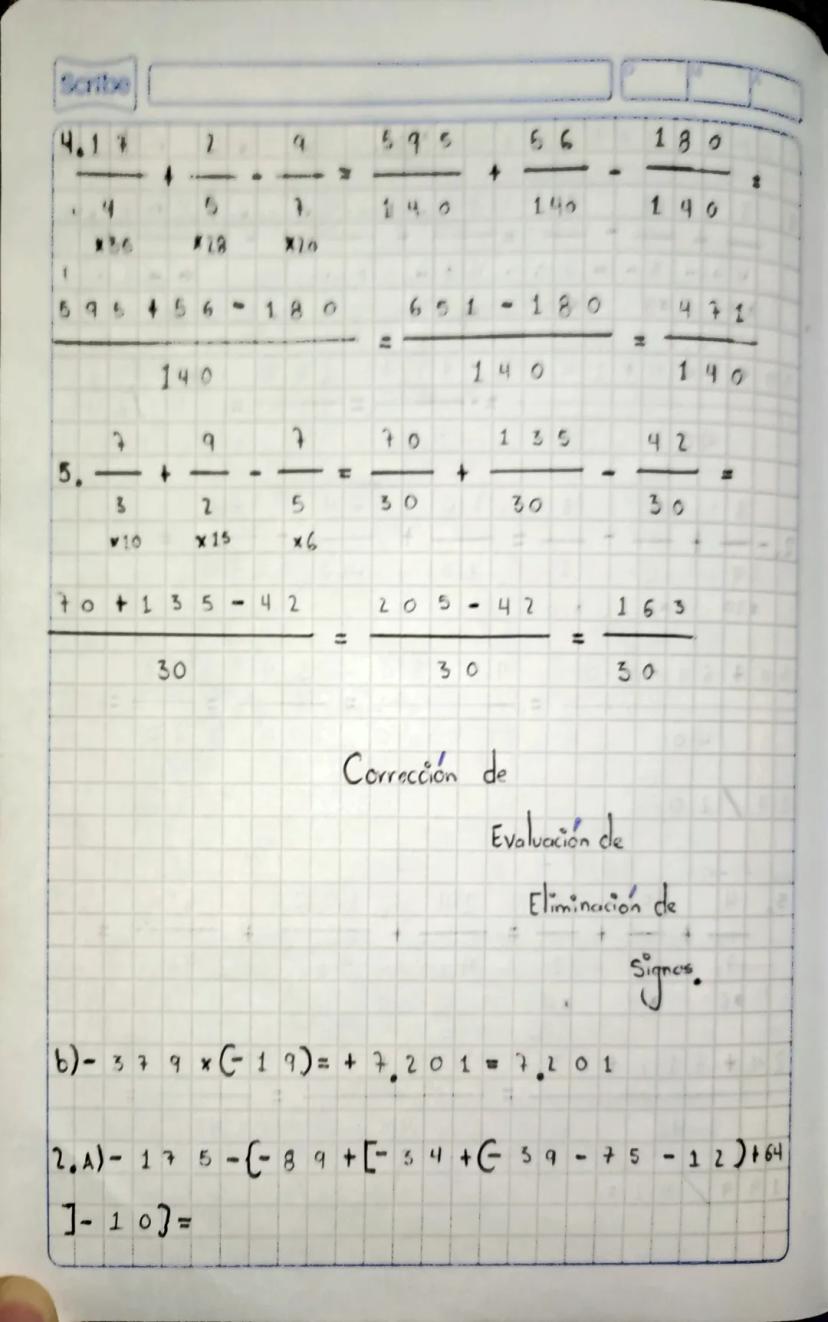 Scribe
4. 17/4 + 2/5 - 9/7 = 595/140 + 56/140 - 180/140 =
×35 ×28 ×20
595 + 56 - 180/140 = 651 - 180/140 = 471/140
5. 7/3 + 9/2 - 7/5 = 70/30 + 135/30 - 42/30 =
×10 ×15 ×6
70 + 135 - 42/30 = 205 - 42/30 = 163/30
Corrección de
Evaluación de
Eliminación de
Signos.
b) - 379 × (- 19) = + 7.201 = 7.201
2. A) - 175 - {- 89 + [- 34 + (- 39 - 75 - 12) + 64
] - 10} =